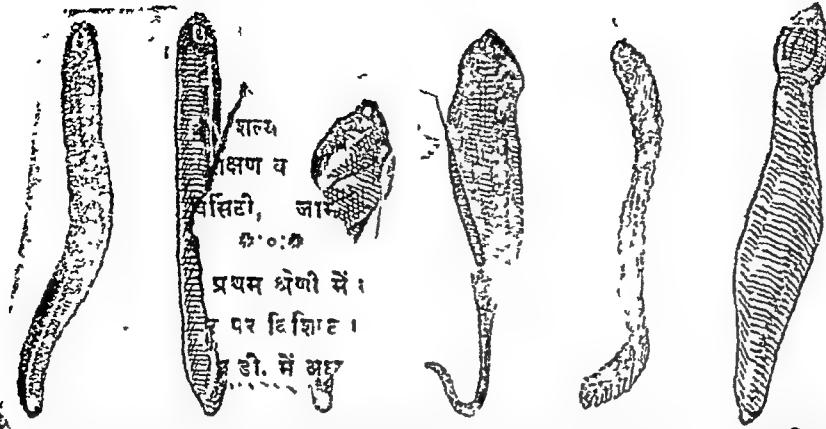 शल्य
क्षण व
र्सिटी, जाम
०:०:०
प्रथम श्रेणी में।
पर विशिष्ट।
डी. में अध